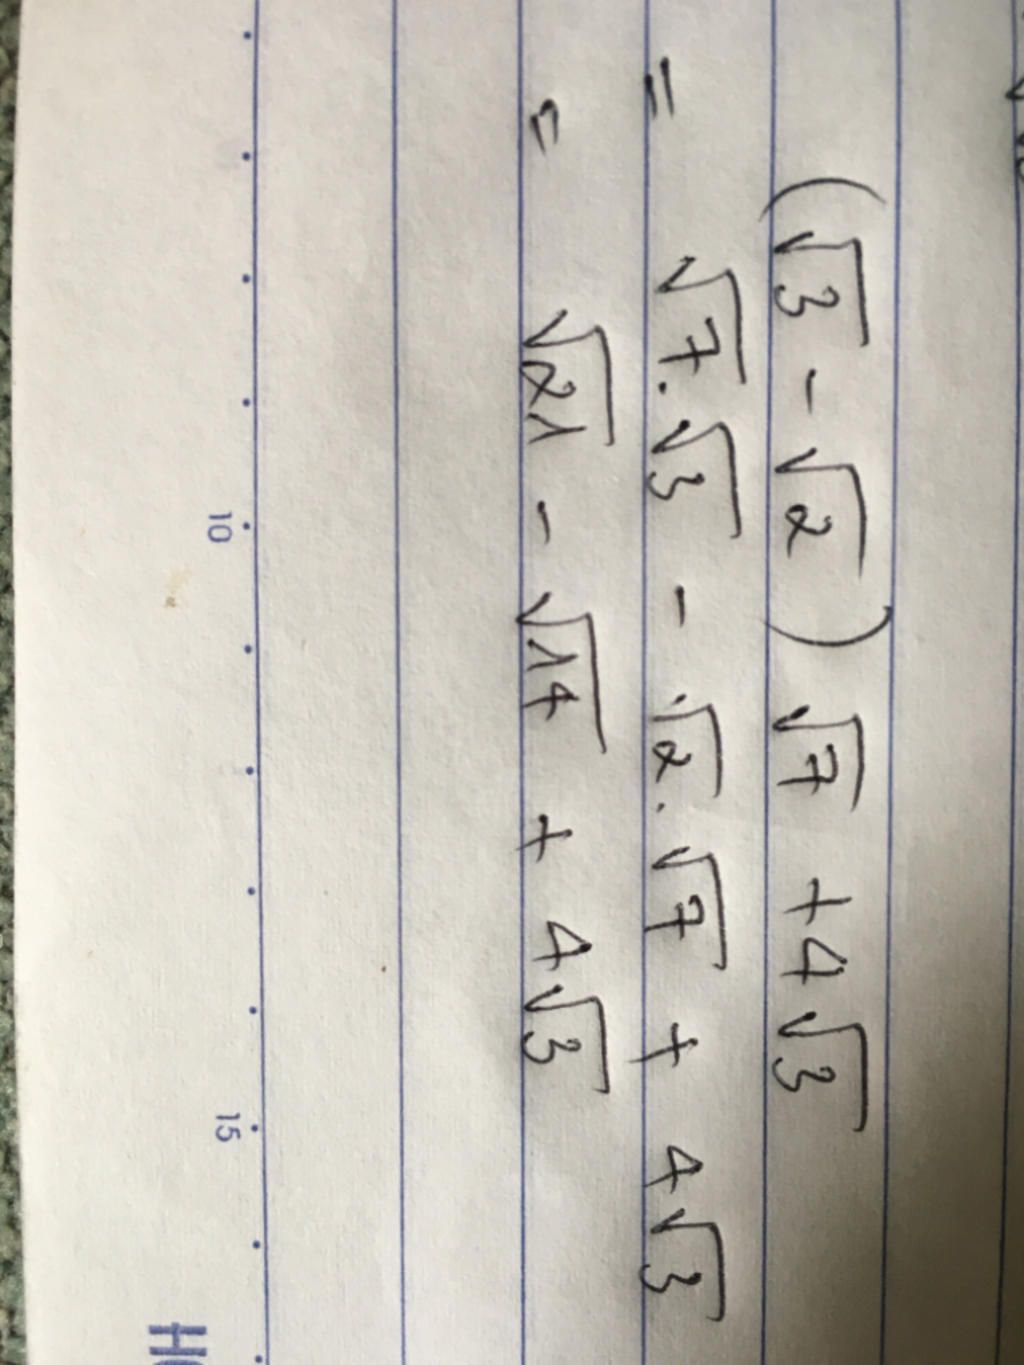 (√3 - √2) √7 + 4√3
= √7.√3 - √2.√7 + 4√3
= √21 - √14 + 4√3
10
15